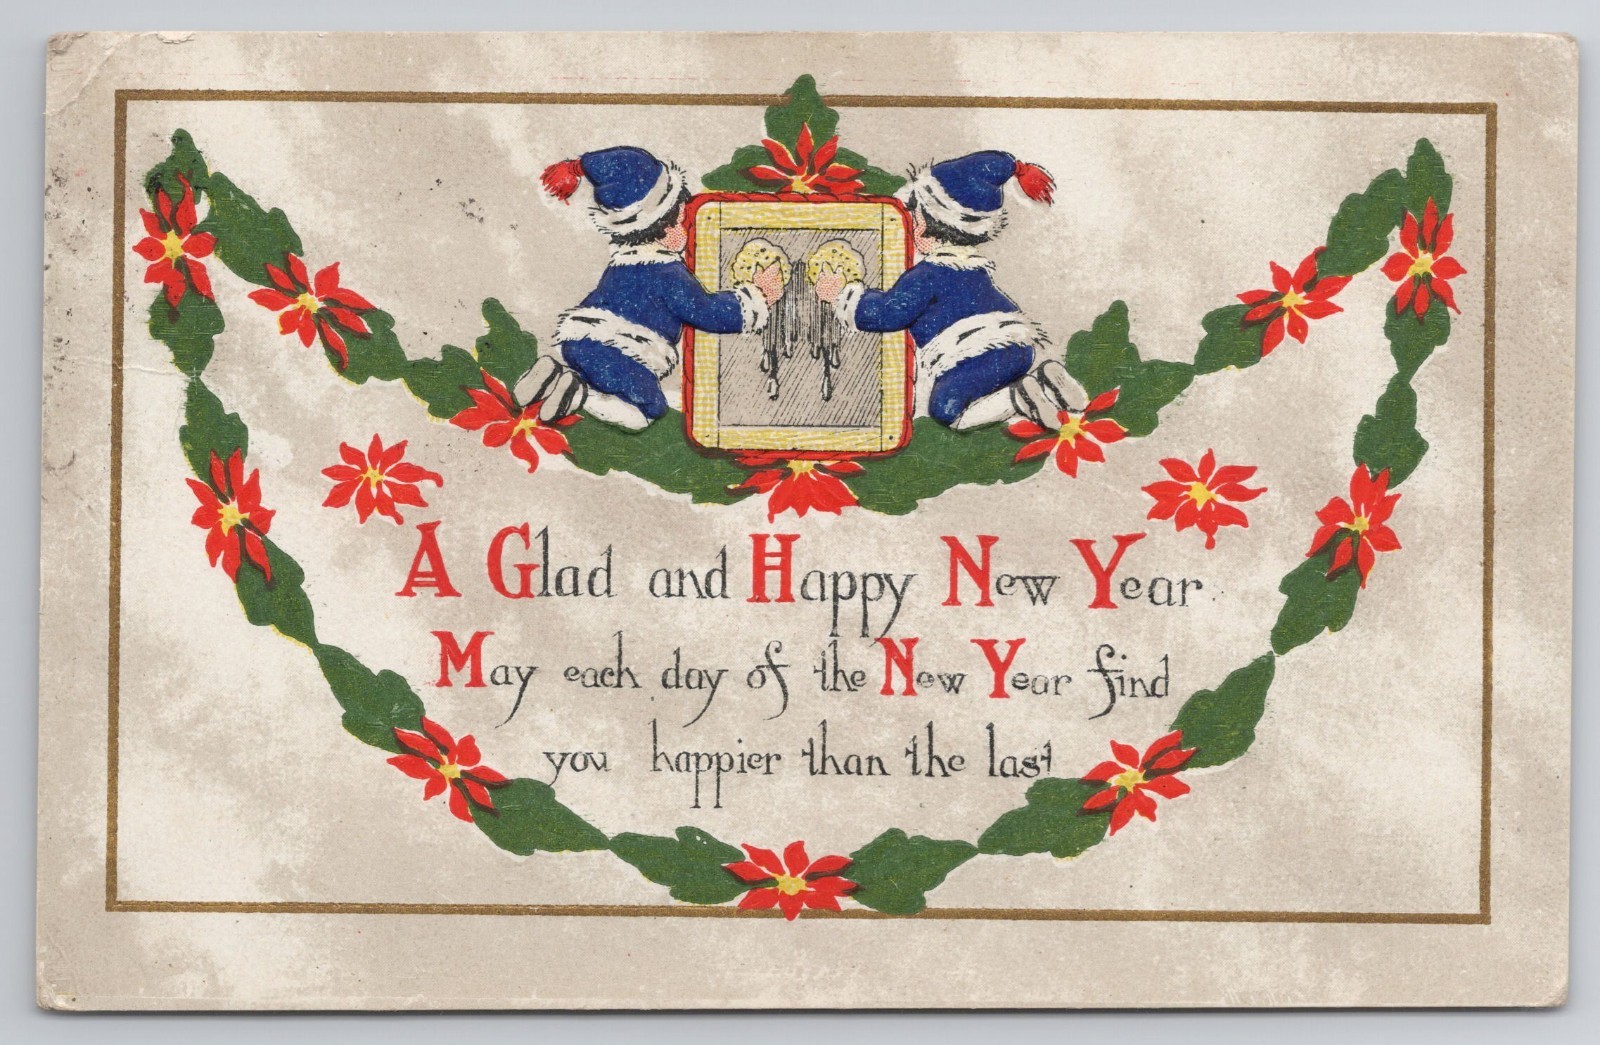 A Glad and Happy New Year
May each day of the New Year find
you happier than the last